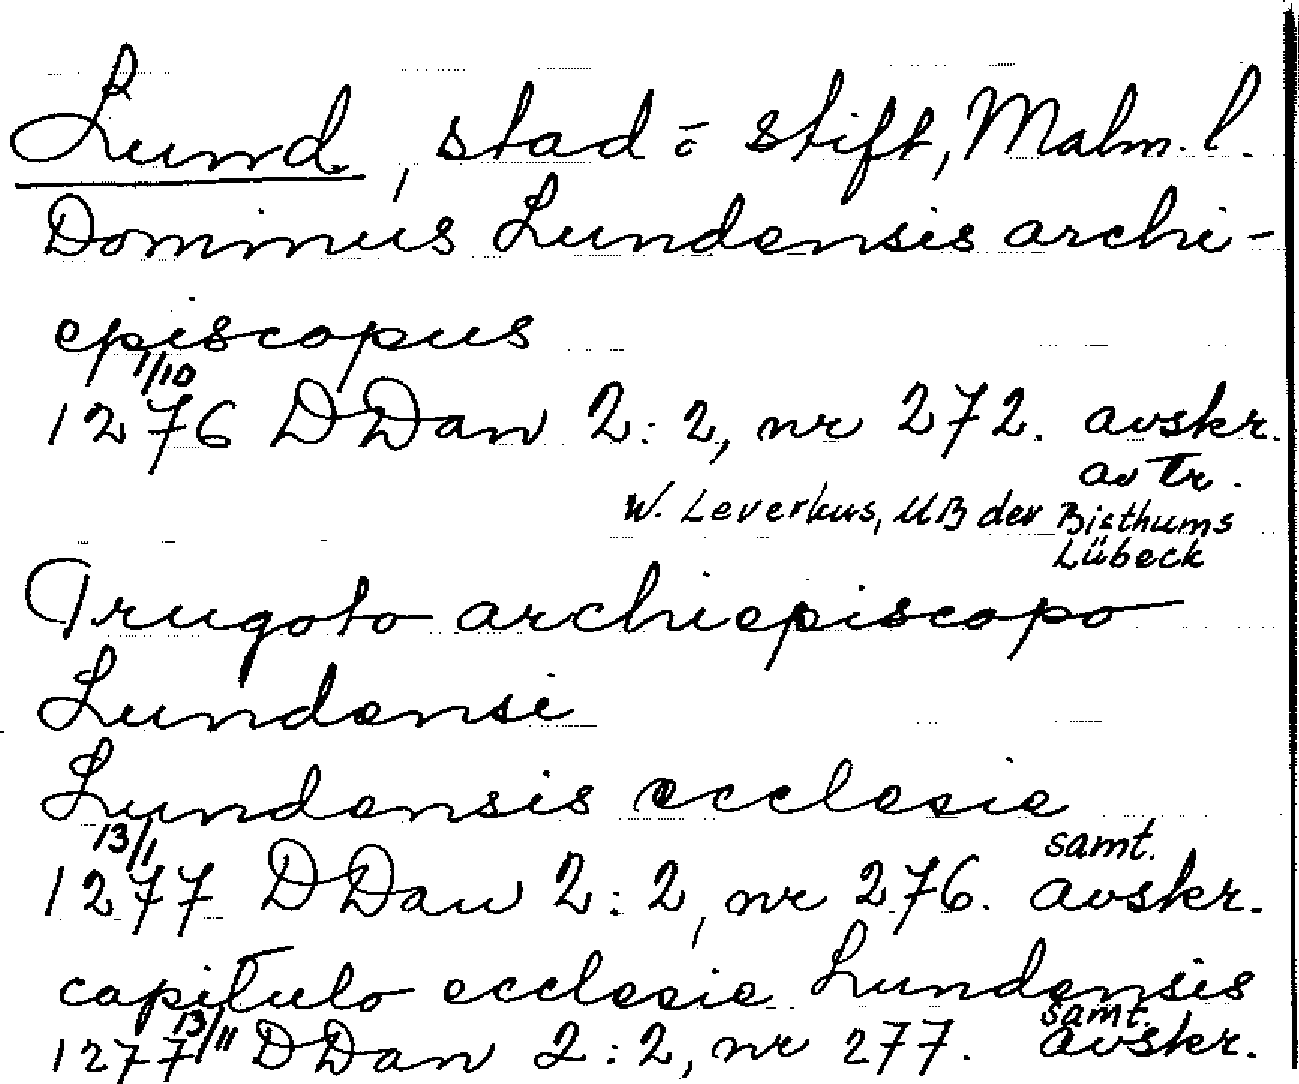 Lund, stad o stift, Malm. l.
Dominus Lundensis archi-
episcopus
1/10
1276 DDan 2:2, nr 272. avskr.
av tr.
W. Leverkus, UB der Bisthums
Lübeck
Trugoto archiepiscopo
Lundensi
Lundensis ecclesie
13/1 samt.
1277 DDan 2:2, nr 276. avskr.
capitulo ecclesie Lundensis
13/11 samt.
1277 DDan 2:2, nr 277. avskr.